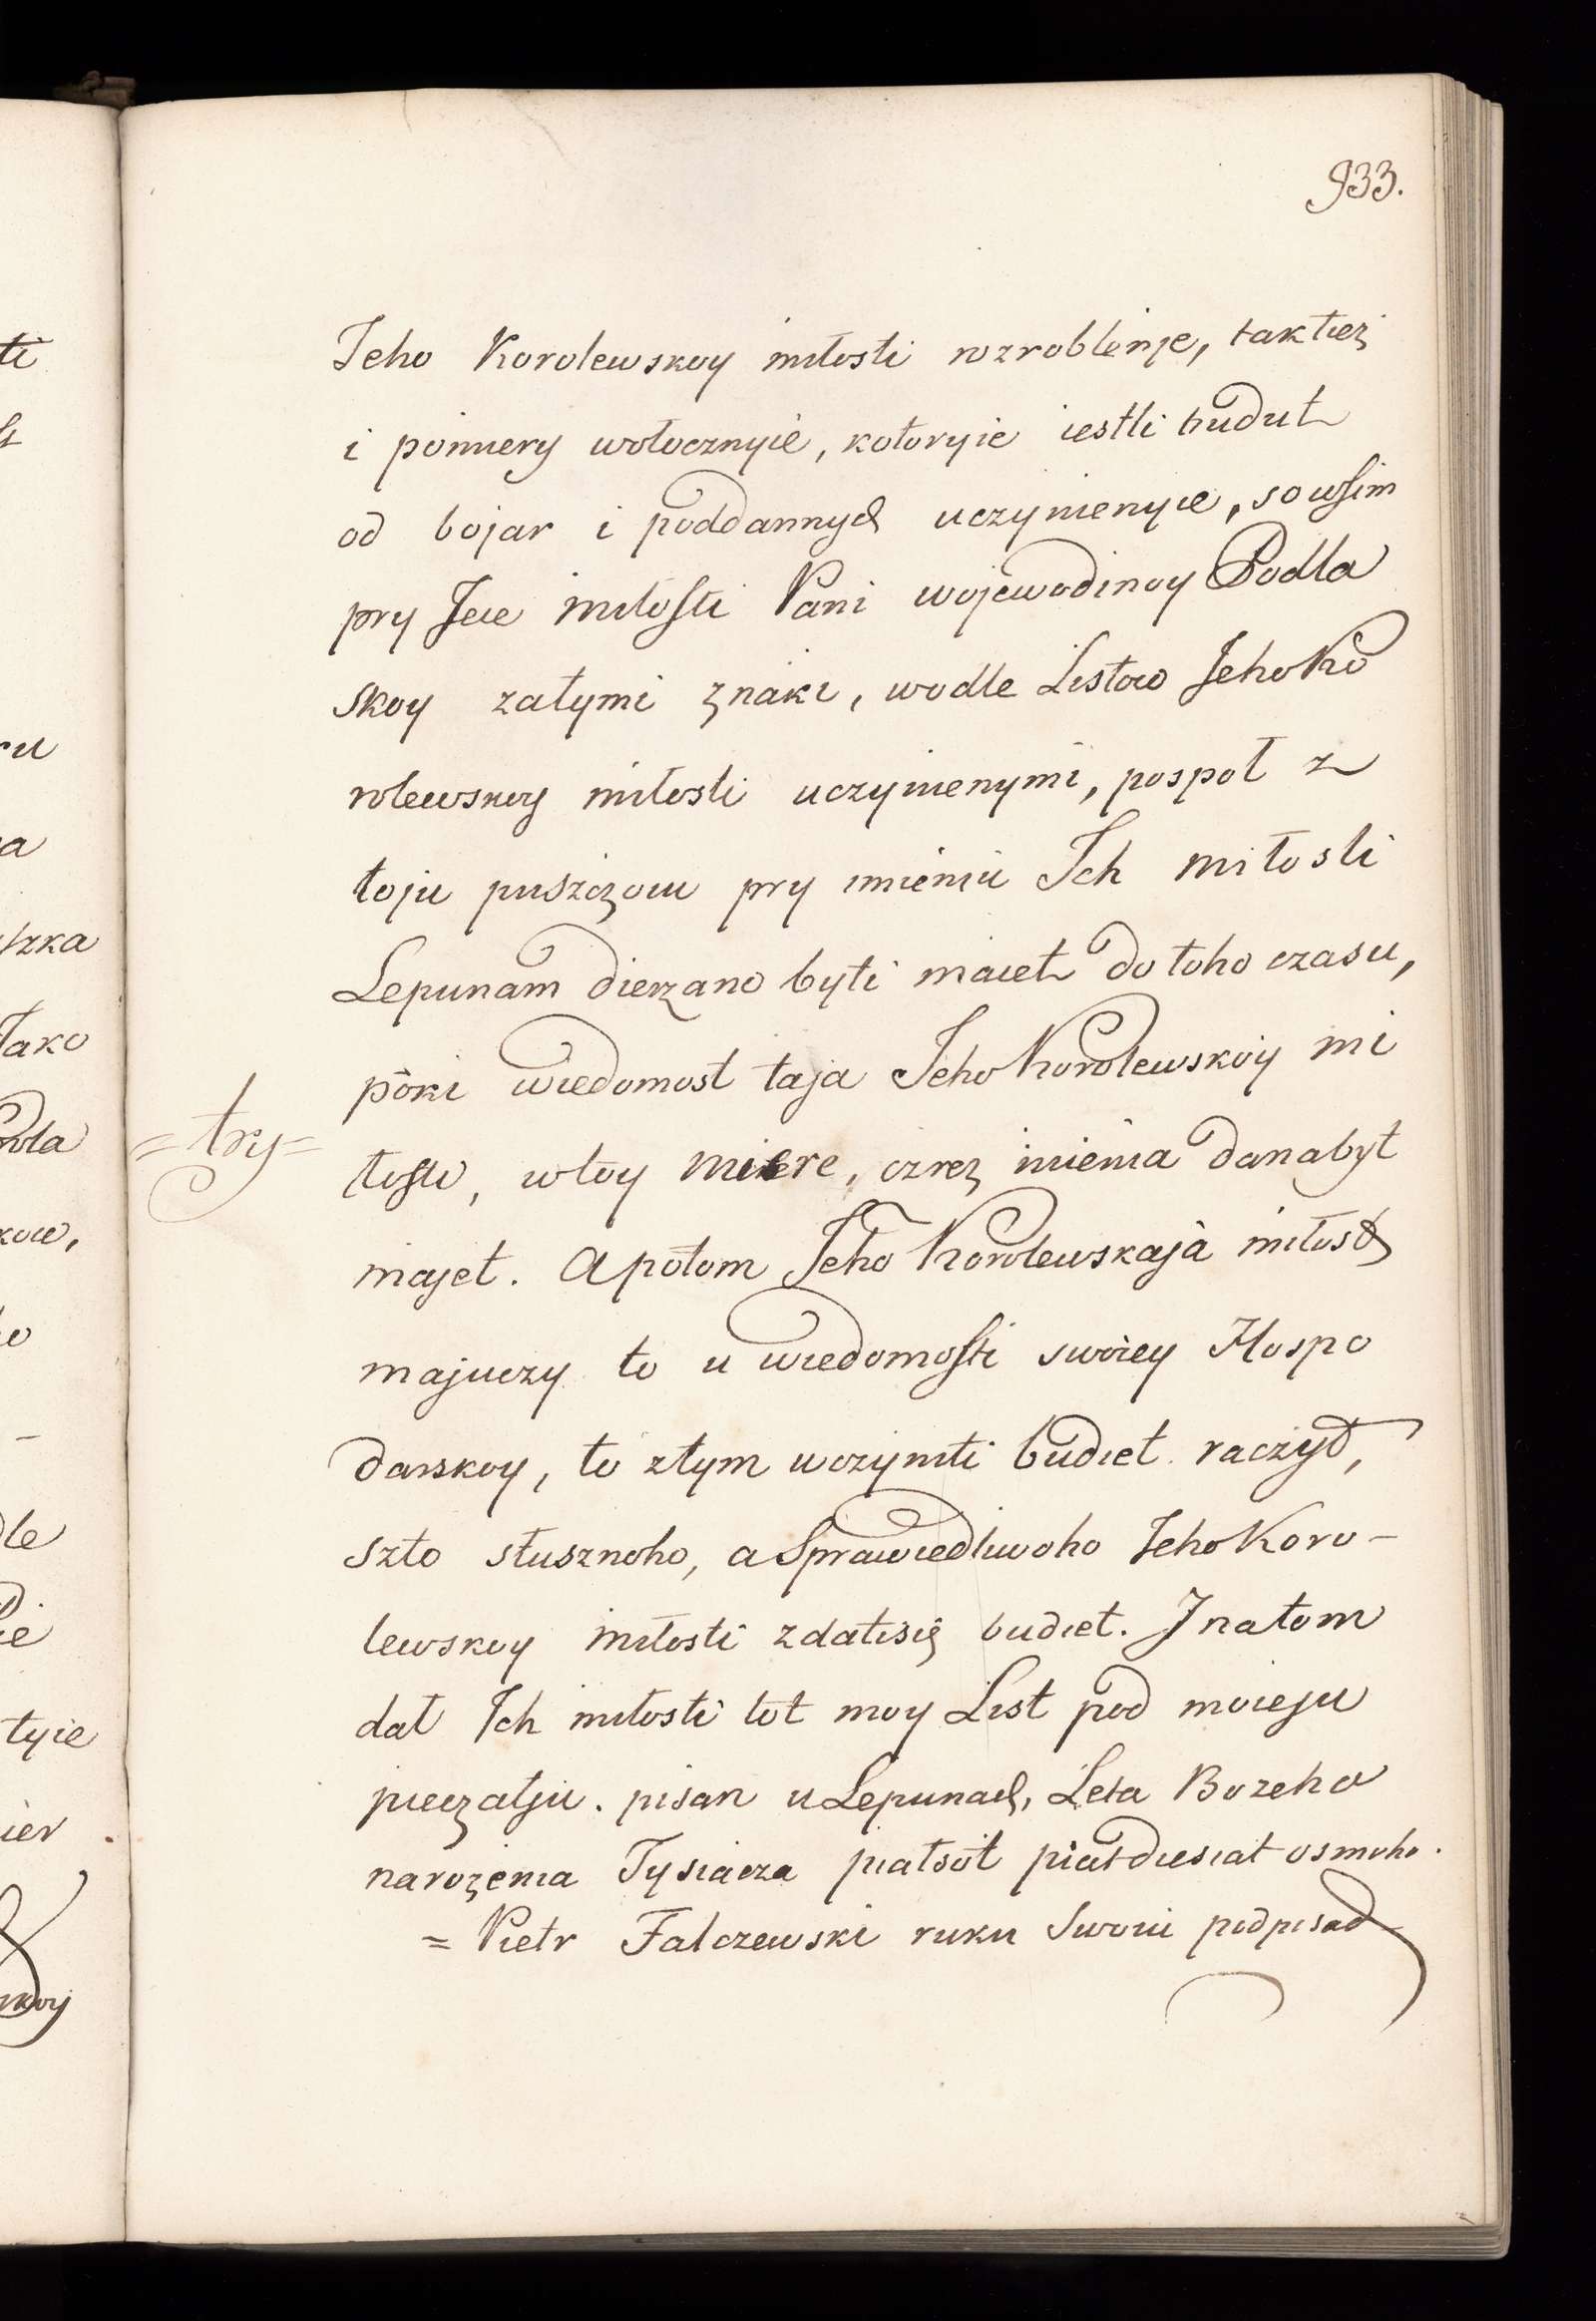 933.
Jeho Korolewskoy miłosti rozroblenje, taktież
i pomiery wołocznyie, kotoryie iestli budut
od bojar i poddannych uczynienyie, sowsim
pry Jeie miłosti Pani wojewodinoy Podla
skoy zatymi znaki, wodle Listow Jeho Ko
rolewskoy miłosti uczynienymi, pospoł z
toju puszczoiu pry imieniu Ich miłosti
Lepunam dierżano byti maiet do toho czasu,
póki wiedomost taja Jeho Korolewskoiy mi
=try= łosti, wtoy miere, czrez imienia dana byt
majet. A potom Jeho Korolewskaja miłost
majuczy to u wiedomosti swoiey Hospo
darskoy, to ztym uczyniti budiet raczył,
szto słusznoho, a Sprawiedliwoho Jeho Koro-
lewskoy miłosti zdatisię budiet. I natom
dał Ich miłosti tot moy List pod moieju
pieczatju. pisan u Lepunach, Leta Bozeho
narożenia Tysiacza piatsot piatdiesiat osmoho.
= Pietr Falczewski ruku swoiu podpisał
ti
ru
a
tako
kow,
dle
tyie